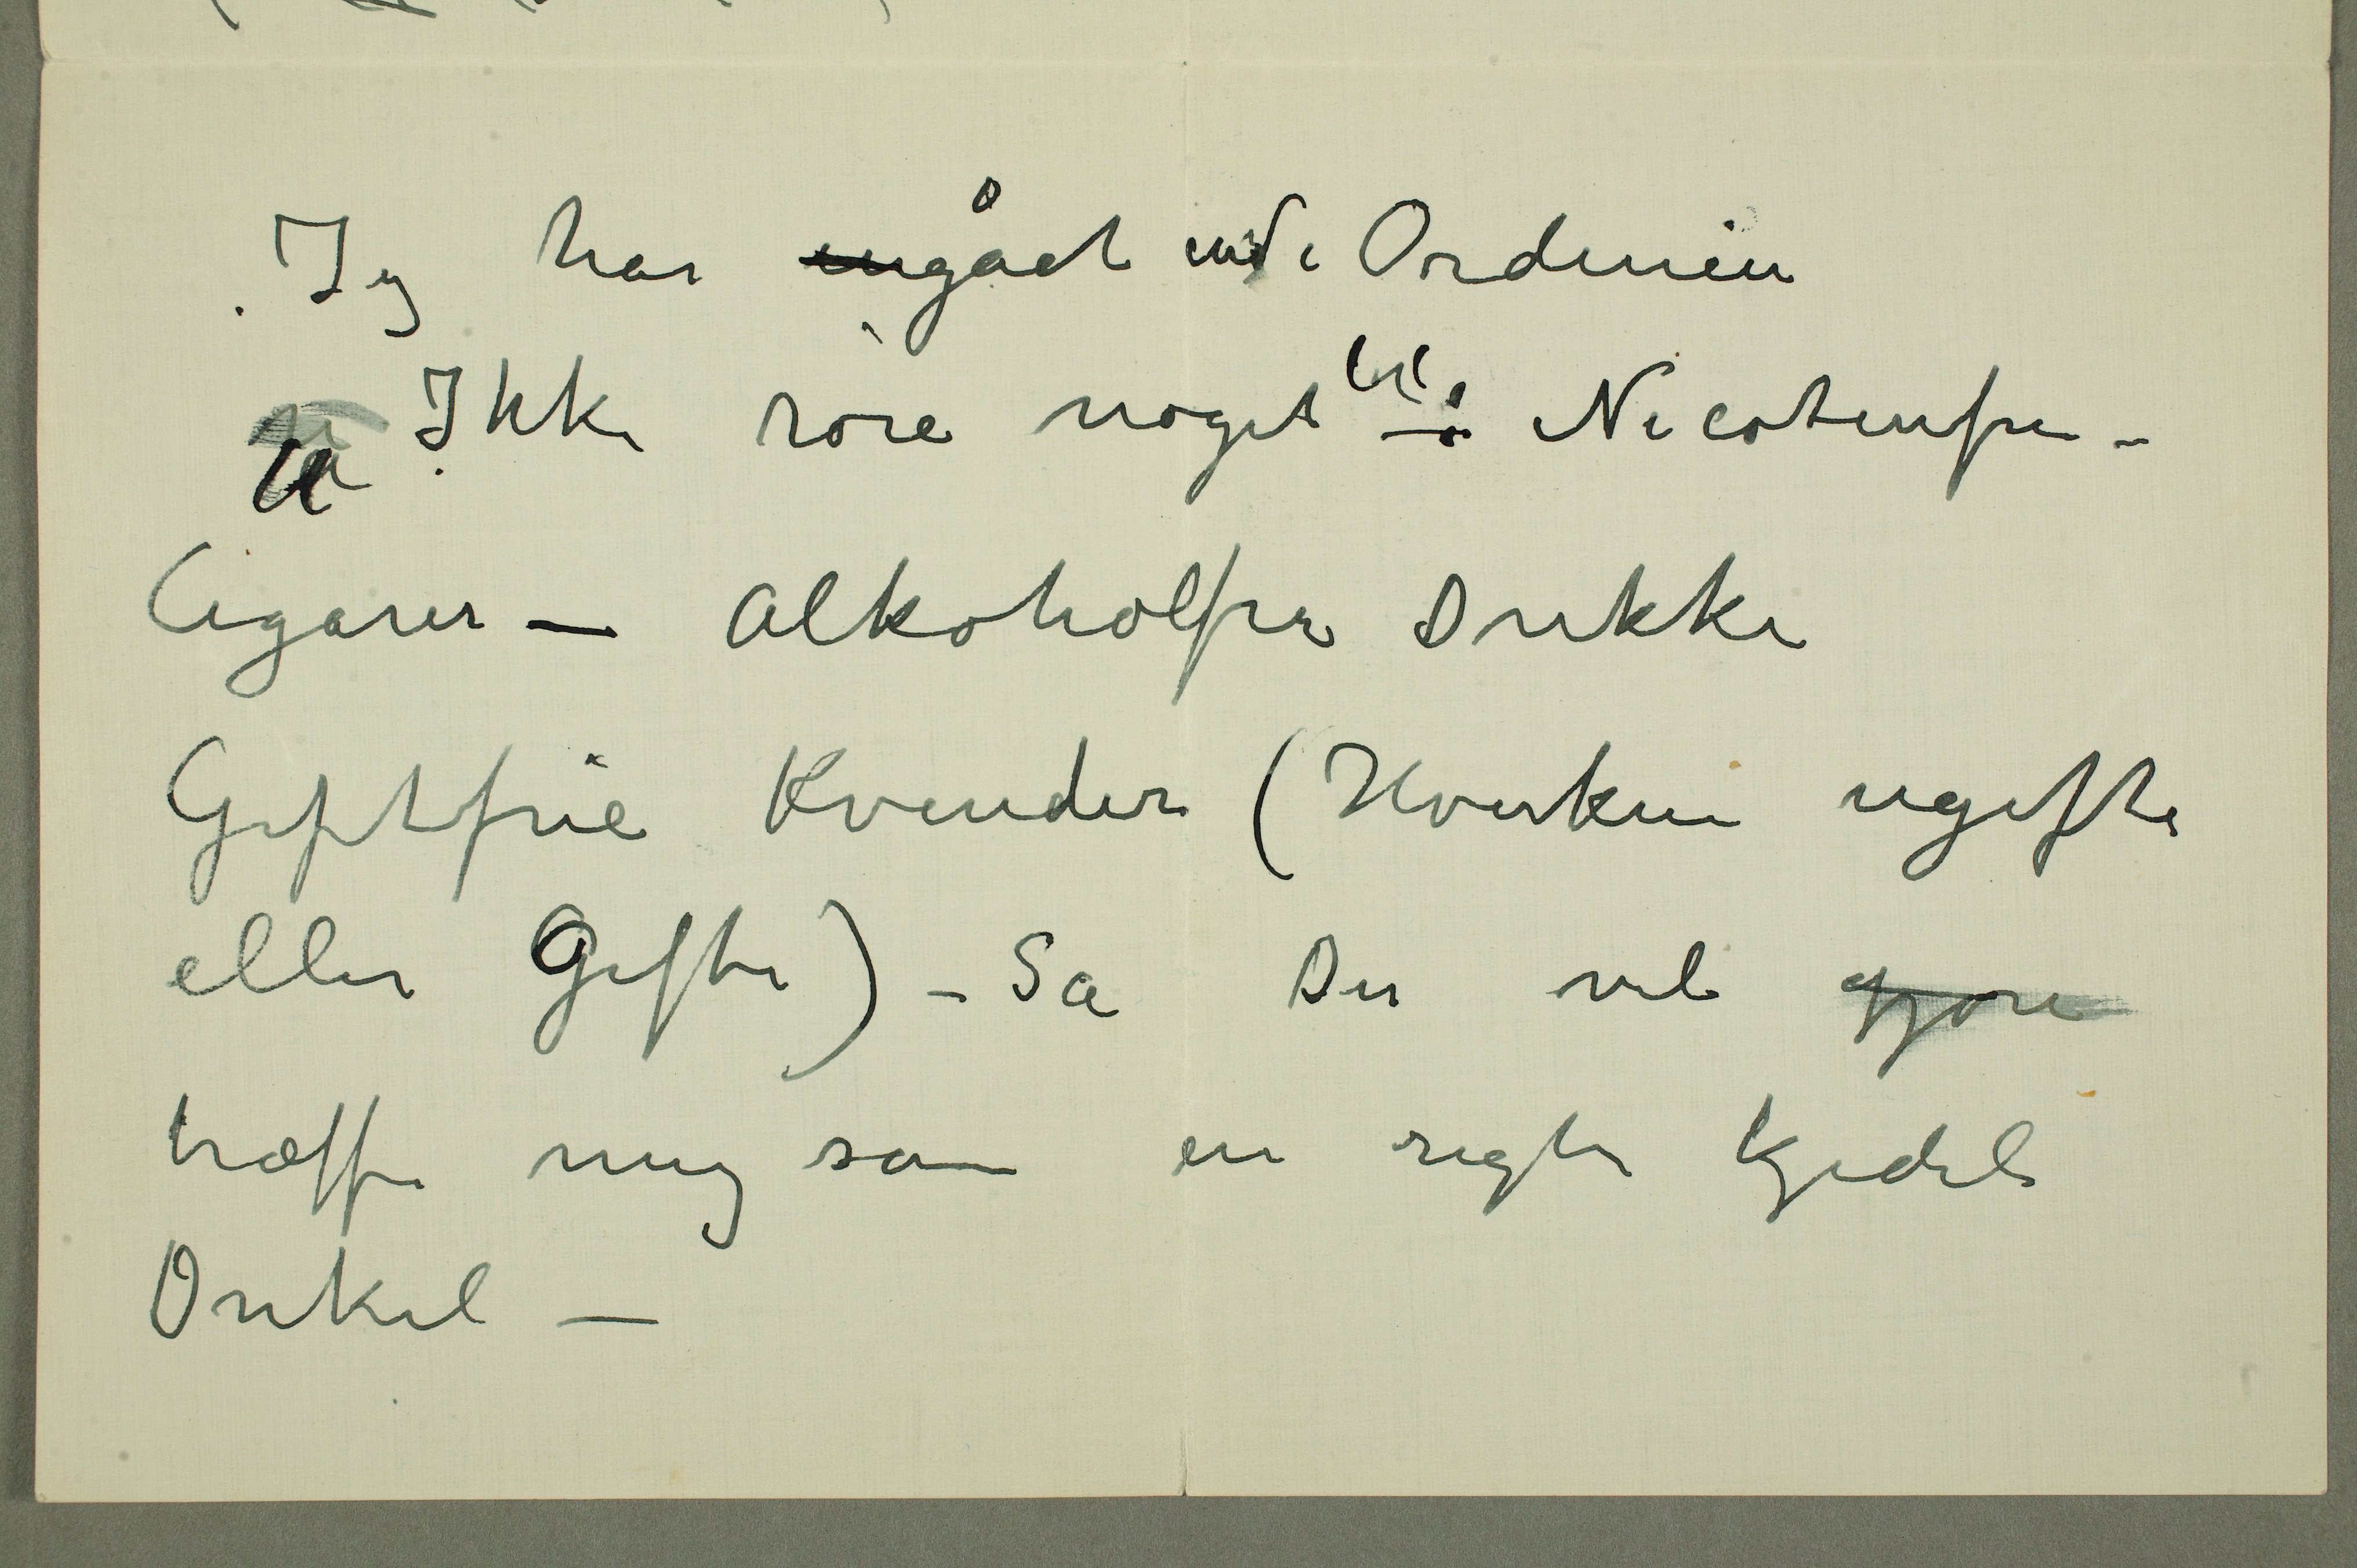 Jeg har gået ind i Ordenen
Ikke røre noget til: Nicotinfri –
Cigarer — Alkoholfri Drikke
Giftfrie Kvinder (Hverken ugifte
eller Gifte) – Så De vil gjøre
træffe mig som en rigti kjedeli
Onkel —